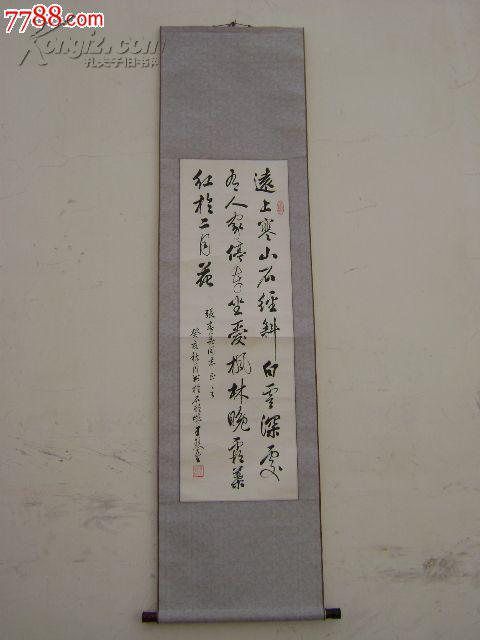 7788.com
Kongfz.com
孔夫子旧书网
遠上寒山石經斜白雲深處
有人家停車坐愛楓林晚霜葉
紅於二月花
張同志正之
癸亥秋月